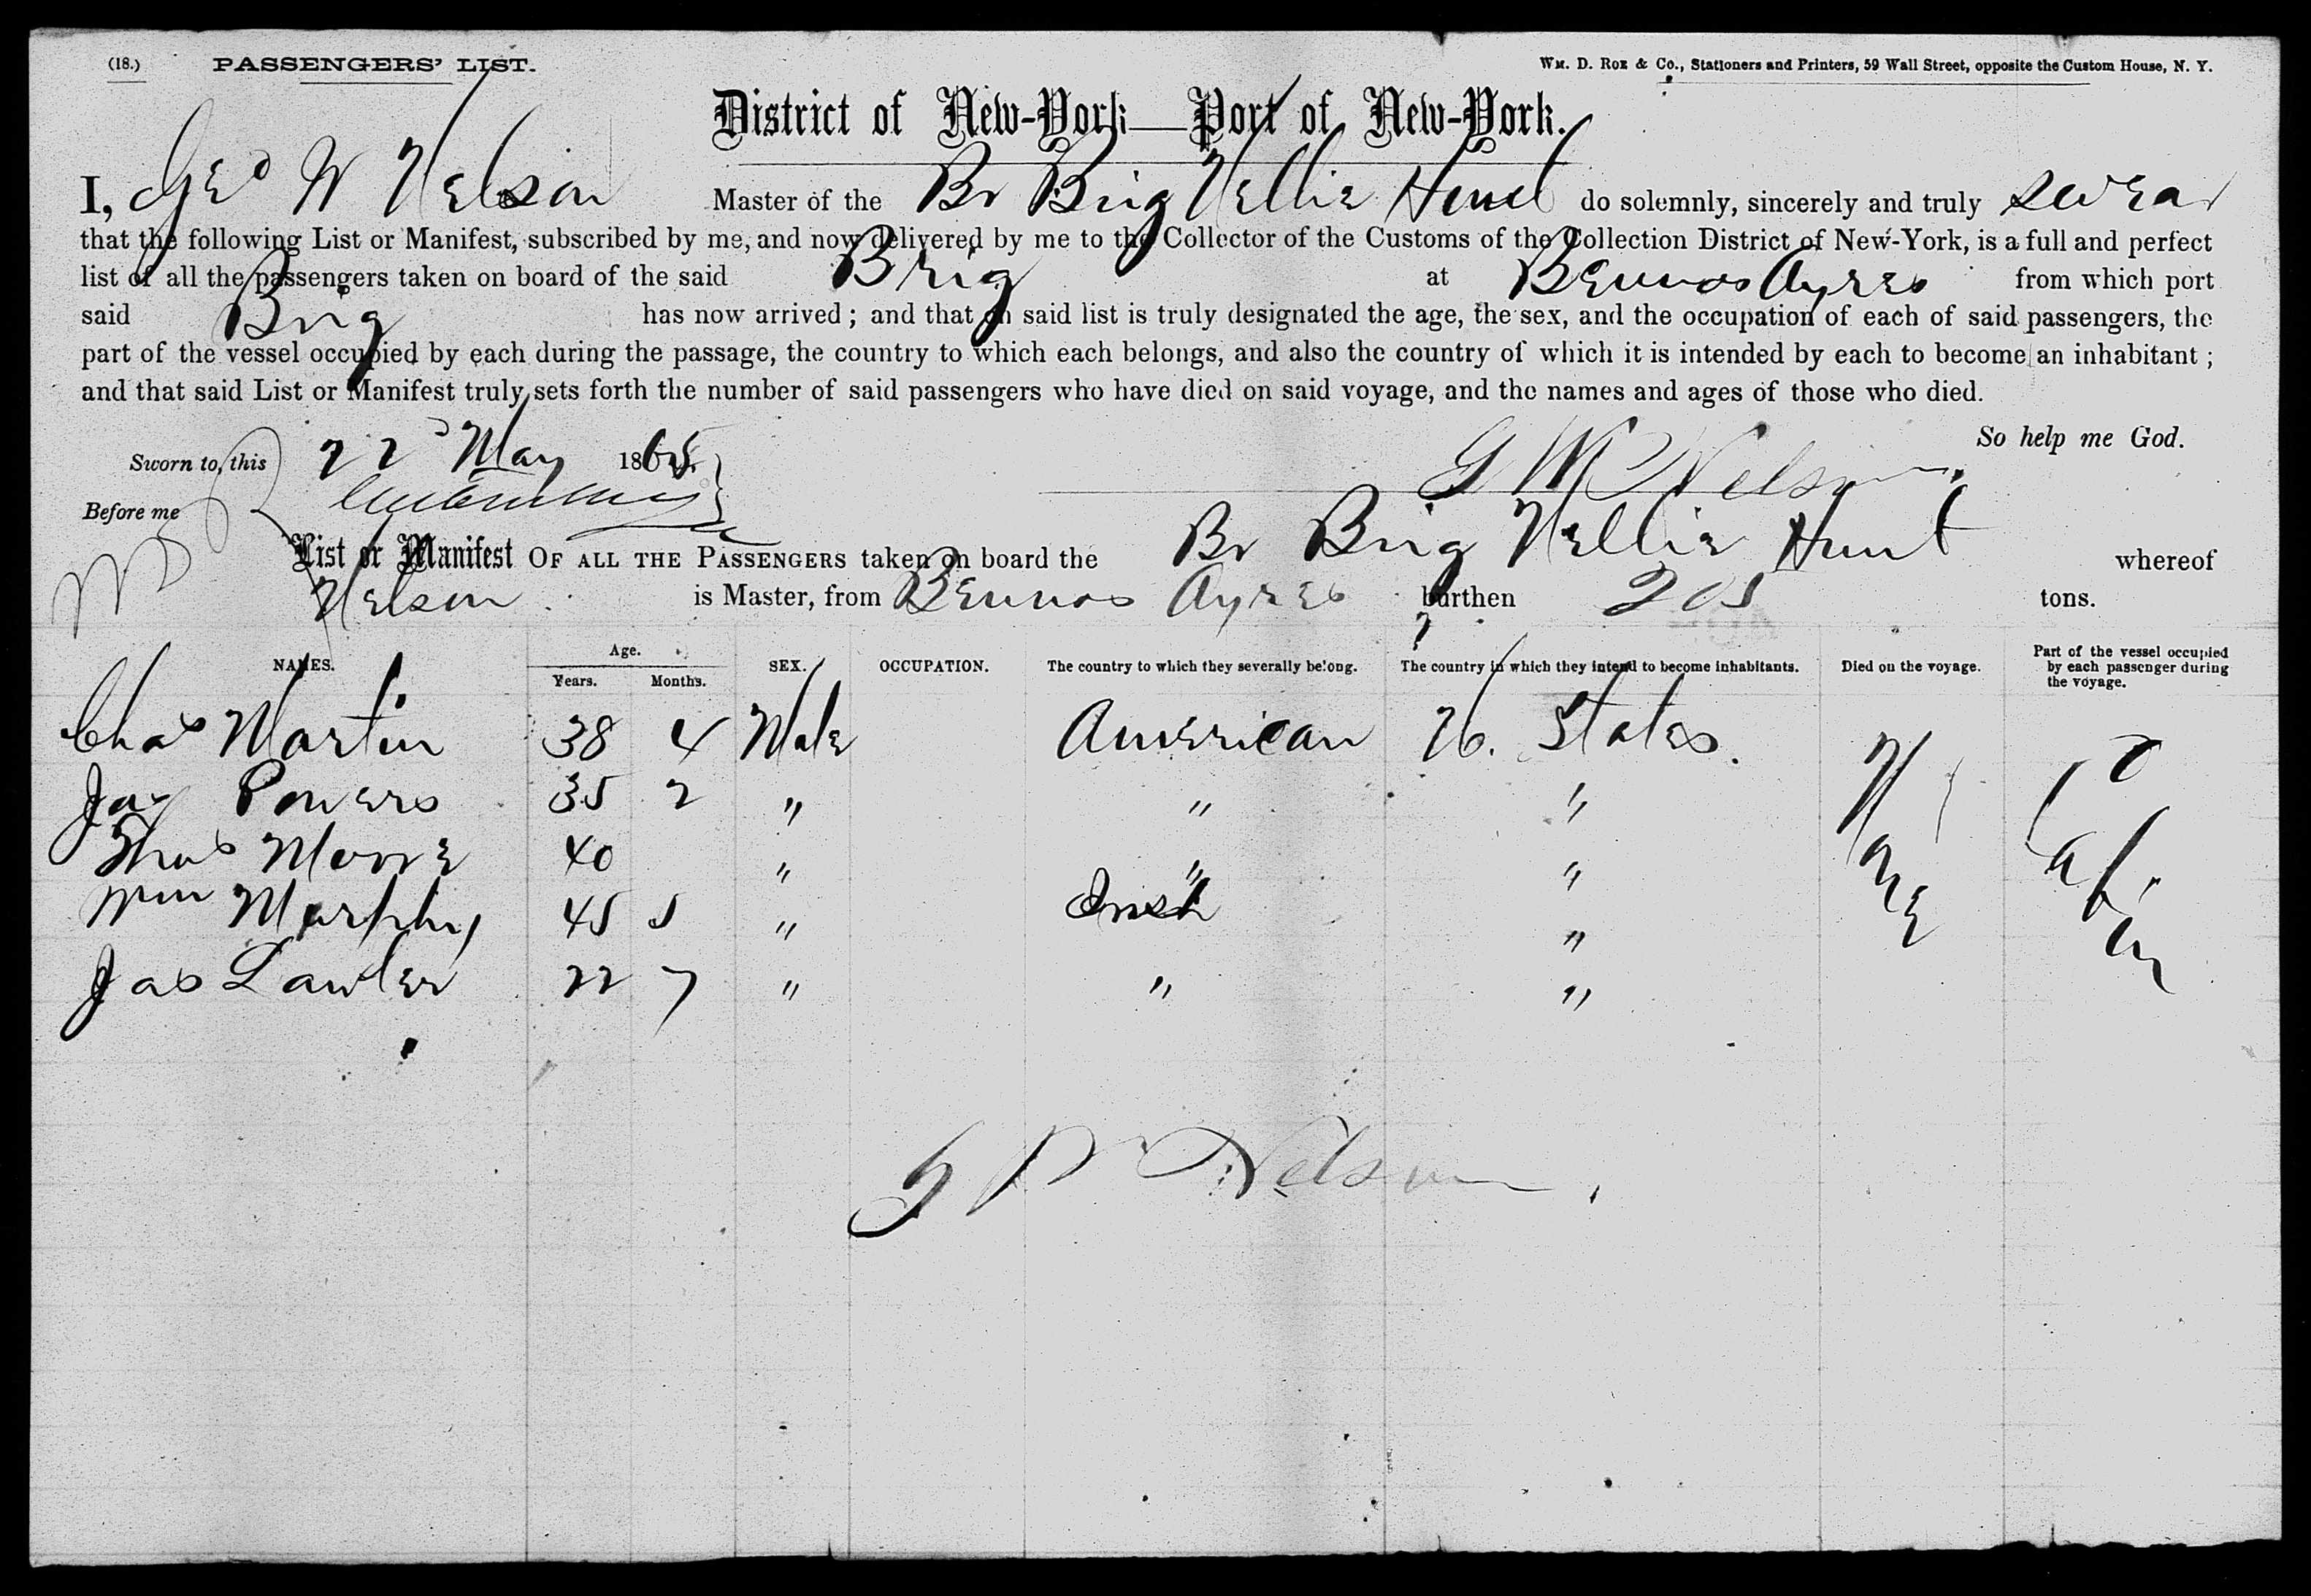 (18.) PASSENGERS' LIST. Wm. D. Roe & Co., Stationers and Printers, 59 Wall Street, opposite the Custom House, N. Y.
District of New-York—Port of New-York.
I, Geo W Nelson Master of the Br Brig Nellie Hunt do solemnly, sincerely and truly swear
that the following List or Manifest, subscribed by me, and now delivered by me to the Collector of the Customs of the Collection District of New-York, is a full and perfect
list of all the passengers taken on board of the said Brig at Beunos Ayres from which port
said Brig has now arrived; and that on said list is truly designated the age, the sex, and the occupation of each of said passengers, the
part of the vessel occupied by each during the passage, the country to which each belongs, and also the country of which it is intended by each to become an inhabitant;
and that said List or Manifest truly sets forth the number of said passengers who have died on said voyage, and the names and ages of those who died.
So help me God.
Sworn to, this 22d May 1865.
G W Nelson
Before me
List or Manifest OF ALL THE PASSENGERS taken on board the Br Brig Nellie Hunt whereof
Nelson is Master, from Beunos Ayres burthen 205 tons.
NAMES. Age. Years. Months. SEX. OCCUPATION. The country to which they severally belong. The country in which they intend to become inhabitants. Died on the voyage. Part of the vessel occupied by each passenger during the voyage.
Chas Martin 38 4 Male American U. States. None Cabin
Jas Powers 35 2 " " "
Thos 40 " " "
Wm Murphy 45 5 " Irish "
Jas Lawler 22 7 " " "
G W Nelson